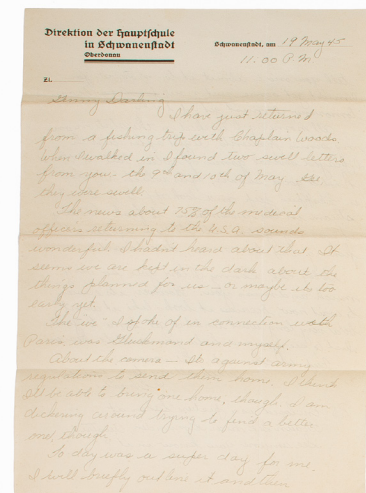 Direktion der Hauptschule
in Schwanenstadt
Oberdonau
Schwanenstadt, am 19 May 45
11.00 P.M.
Zl.
Ginny Darling
I have just returned
from a fishing trip with Chaplain Woods.
When I walked in I found two swell letters
from you - the 9th and 10th of May.
they were swell.
The news about 75% of the medical
officers returning to the U.S.A. sounds
wonderful. I hadn't heard about that. It
seems we are kept in the dark about the
things planned for us - or maybe its too
early yet.
The "we" I spoke of in connection with
Paris was and myself.
About the camera — Its against army
regulations to send them home. I think
I'll be able to bring one home, though. I am
dickering around trying to find a better
one, though.
To day was a super day for me.
I will briefly outline it and then